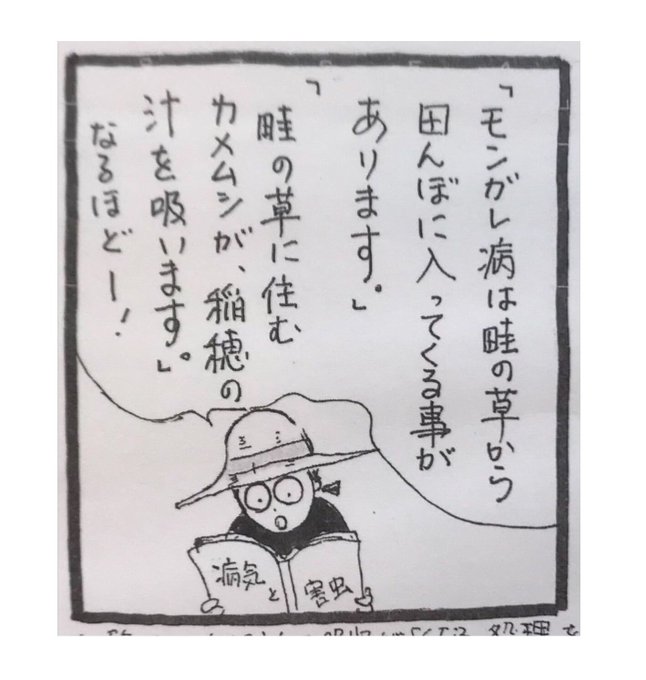 「モンガレ病は畦の草から
田んぼに入ってくる事が
あります。」
「畦の草に住む
カメムシが、稲穂の
汁を吸います。」
なるほどー!
病気と
害虫
処理を